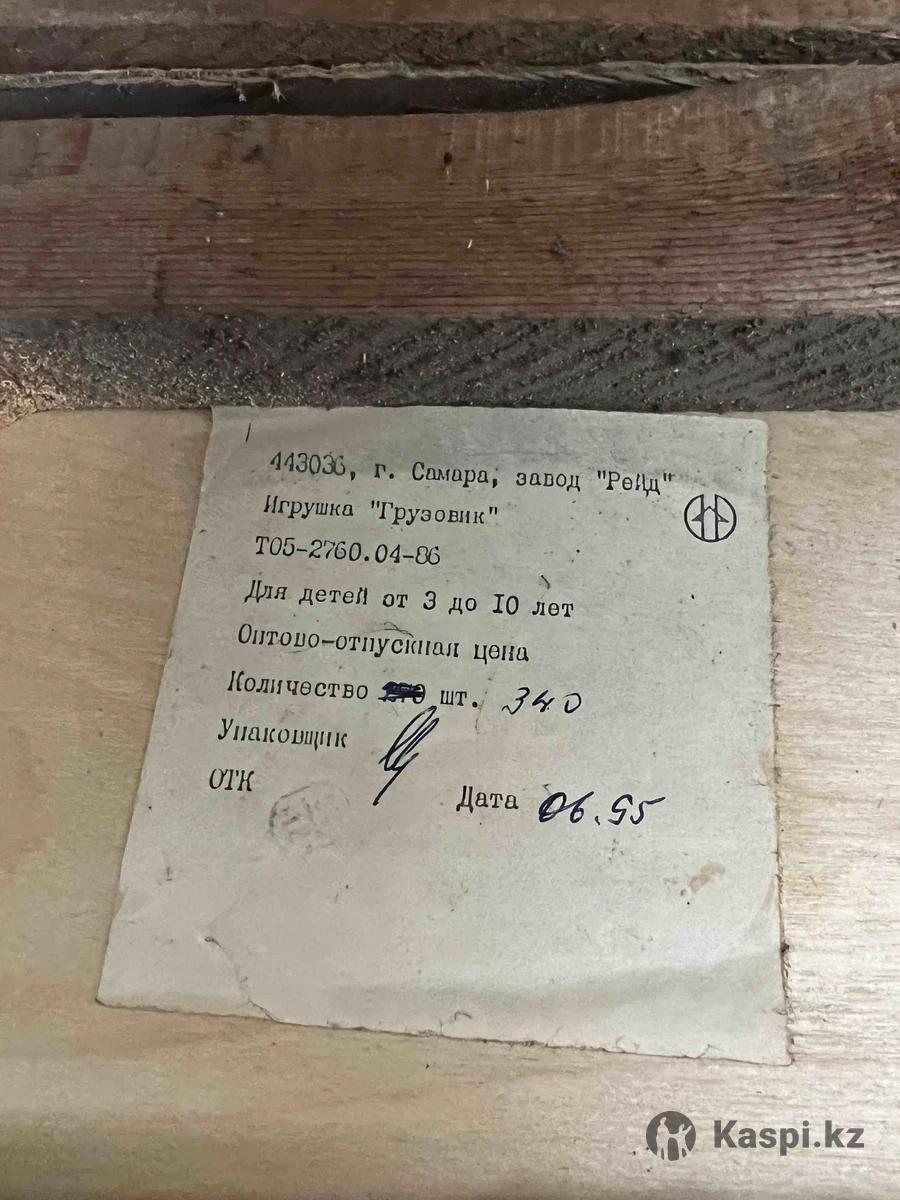 443036, г. Самара, завод "Рейд"
Игрушка "Грузовик"
Т05-2760.04-86
Для детей от 3 до 10 лет
Оптово-отпускная цена
Количество шт. 340
Упаковщик
ОТК
Дата 06.95
Kaspi.kz